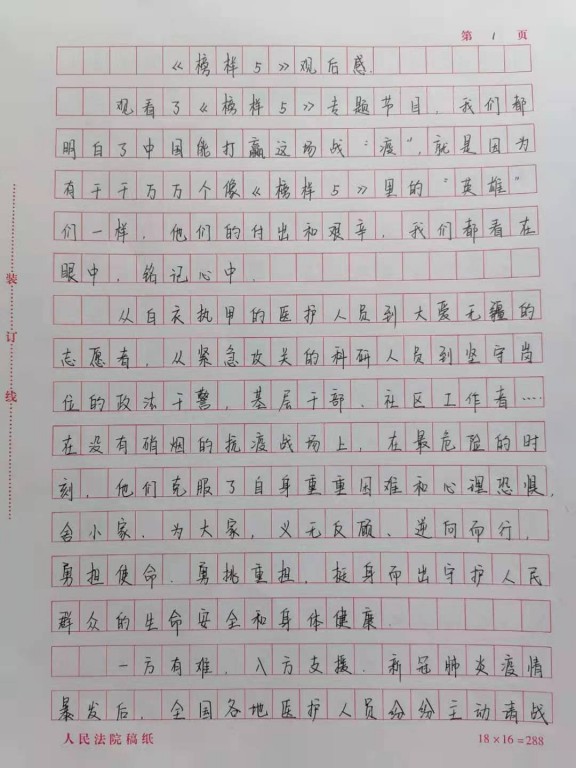 第 1 页
《榜样5》观后感.
观看了《榜样5》专题节目，我们都
明白了中国能打赢这场战“疫”，就是因为
有千千万万个像《榜样5》里的“英雄”
们一样，他们的付出和艰辛，我们都看在
眼中，铭记心中.
从白衣执甲的医护人员到大爱无疆的
志愿者，从紧急攻关的科研人员到坚守岗
位的政法干警，基层干部、社区工作者…
在没有硝烟的抗疫战场上，在最危险的时
刻，他们克服了自身重重困难和心理恐惧，
舍小家、为大家，义无反顾、逆向而行，
勇担使命、勇挑重担，挺身而出守护人民
群众的生命安全和身体健康.
一方有难，八方支援.新冠肺炎疫情
暴发后，全国各地医护人员纷纷主动请战
人民法院稿纸
18×16=288
装订线